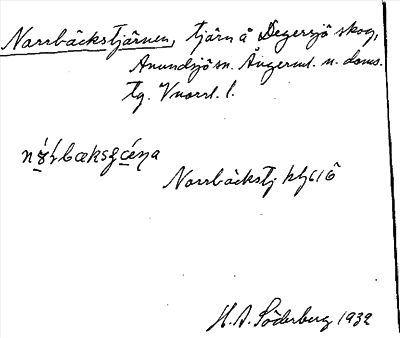 Norrbäckstjärnen, tjärn å Degersjö skog,
Anundsjö sn. Ångerml. n. doms.
tg. Vnorrl. l.
Norrbäckstj
H. A. Söderberg 1932